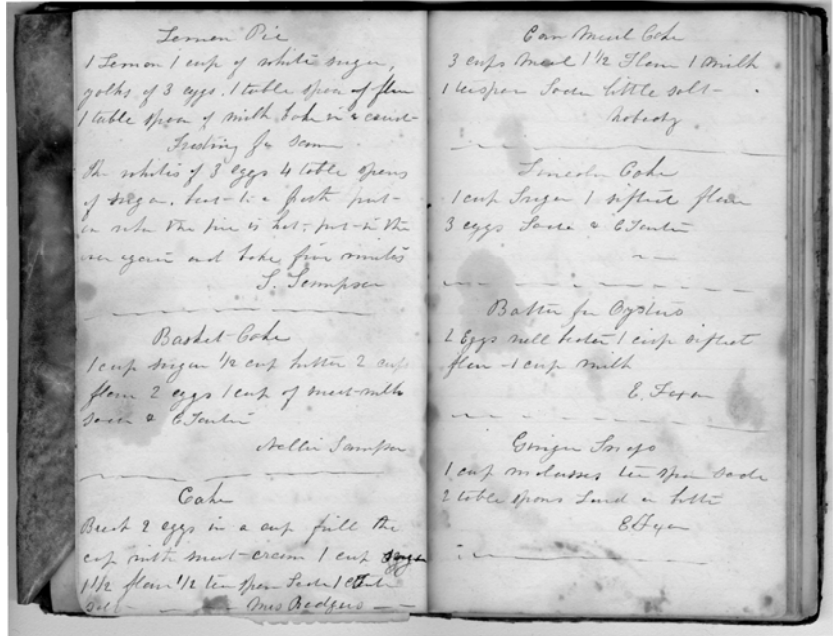 Lemon Pie
1 Lemon 1 cup of white sugar,
yolks of 3 eggs. 1 table spoon of flour
1 table spoon of milk bake in a crust-
Frosting for same
the whites of 3 eggs 4 table spoons
of sugar. beat to a froth put-
on when the pie is hot- put in the
oven again and bake five minutes
S. Sampson
Basket Cake
1 cup sugar 1/2 cup butter 2 cups
flour 2 eggs 1 cup of sweet-milk
Soda & C Tartar
Nellie Sampson
Cake
Break 2 eggs in a cup fill the
cup with sweet-cream 1 cup sugar
1 1/2 flour 1/2 tea spoon Soda 1 C Tartar
Salt Mrs Rodgers
Corn Meal Cake
3 cups Meal 1 1/2 Flour 1 milk
1 teaspoon Soda little salt-
Nobody
Lincoln Cake
1 cup Sugar 1 sifted flour
3 eggs Soda & C Tartar
Batter for Oysters
2 Eggs well beaten 1 cup sifted
flour 1 cup milk
E.
Ginger Snaps
1 cup molasses tea spoon soda
2 table spoons Lard or butter
E